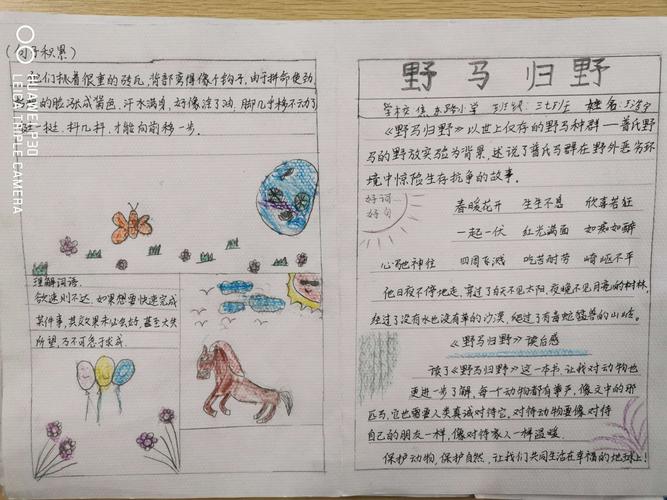 (句子积累)
他们扒着很重的砖瓦,背部弯得像个钩子,由于拼命使劲,
的脸涨成紫色,汗水满身,好像淋了油,脚几乎移不动了
挺一挺,抖几抖,才能向前移一步。
理解词语.
欲速则不达:如果想要快速完成
某件事,其效果未必会好,甚至大失
所望,乃不可急于求成.
野马归野
学校:焦东路小学 班级:三七班 姓名:
《野马归野》以世上仅存的野马种群——普氏野
马的野放实验为背景,述说了普氏马群在野外恶劣环
境中惊险生存抗争的故事。
好词
好句
春暖花开 生生不息 欣喜若狂
一起一伏 红光满面 如痴如醉
心驰神往 四周飞溅 吃苦耐劳 崎岖不平
他日夜不停地走,穿过了白天不见太阳,夜晚不见月亮的树林,
经过了没有水也没有草的沙漠,爬过了有毒蛇猛兽的山岭。
《野马归野》读后感
读了《野马归野》这一本书,让我对动物也
更进一步了解,每一个动物都有尊严,像文中的那
匹马,它也需要人类真诚对待它,对待动物要像对待
自己的朋友一样,像对待家人一样温暖.
保护动物,保护自然,让我们共同生活在幸福的地球上!
HUAWEI P30
LEICA TRIPLE CAMERA